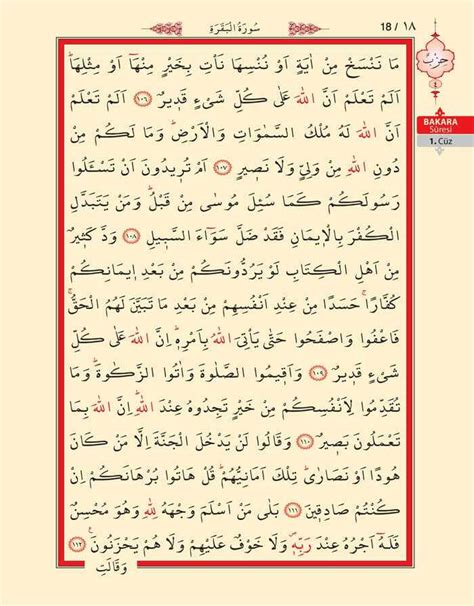 سُورَةُ الْبَقَرَةِ
18 / ١٨
مَا نَنْسَخْ مِنْ اٰيَةٍ اَوْ نُنْسِهَا نَأْتِ بِخَيْرٍ مِنْهَٓا اَوْ مِثْلِهَاۜ
اَلَمْ تَعْلَمْ اَنَّ اللّٰهَ عَلٰى كُلِّ شَيْءٍ قَد۪يرٌ ﴿١٠٦﴾ اَلَمْ تَعْلَمْ
اَنَّ اللّٰهَ لَهُ مُلْكُ السَّمٰوَاتِ وَالْاَرْضِۜ وَمَا لَكُمْ مِنْ
دُونِ اللّٰهِ مِنْ وَلِيٍّ وَلَا نَص۪يرٍ ﴿١٠٧﴾ اَمْ تُر۪يدُونَ اَنْ تَسْـَٔلُوا
رَسُولَكُمْ كَمَا سُئِلَ مُوسٰى مِنْ قَبْلُۜ وَمَنْ يَتَبَدَّلِ
الْكُفْرَ بِالْا۪يمَانِ فَقَدْ ضَلَّ سَوَٓاءَ السَّب۪يلِ ﴿١٠٨﴾ وَدَّ كَث۪يرٌ
مِنْ اَهْلِ الْكِتَابِ لَوْ يَرُدُّونَكُمْ مِنْ بَعْدِ ا۪يمَانِكُمْ
كُفَّارًاۚ حَسَدًا مِنْ عِنْدِ اَنْفُسِهِمْ مِنْ بَعْدِ مَا تَبَيَّنَ لَهُمُ الْحَقُّۚ
فَاعْفُوا وَاصْفَحُوا حَتّٰى يَأْتِيَ اللّٰهُ بِاَمْرِه۪ۜ اِنَّ اللّٰهَ عَلٰى كُلِّ
شَيْءٍ قَد۪يرٌ ﴿١٠٩﴾ وَاَق۪يمُوا الصَّلٰوةَ وَاٰتُوا الزَّكٰوةَۜ وَمَا
تُقَدِّمُوا لِاَنْفُسِكُمْ مِنْ خَيْرٍ تَجِدُوهُ عِنْدَ اللّٰهِۜ اِنَّ اللّٰهَ بِمَا
تَعْمَلُونَ بَص۪يرٌ ﴿١١٠﴾ وَقَالُوا لَنْ يَدْخُلَ الْجَنَّةَ اِلَّا مَنْ كَانَ
هُودًا اَوْ نَصَارٰىۜ تِلْكَ اَمَانِيُّهُمْۜ قُلْ هَاتُوا بُرْهَانَكُمْ اِنْ
كُنْتُمْ صَادِق۪ينَ ﴿١١١﴾ بَلٰى مَنْ اَسْلَمَ وَجْهَهُ لِلّٰهِ وَهُوَ مُحْسِنٌ
فَلَهُٓ اَجْرُهُ عِنْدَ رَبِّه۪ۖ وَلَا خَوْفٌ عَلَيْهِمْ وَلَا هُمْ يَحْزَنُونَ۟ ﴿١١٢﴾
وَقَالَتِ
حِزْبٌ
٤
BAKARA
Sûresi
1. Cüz